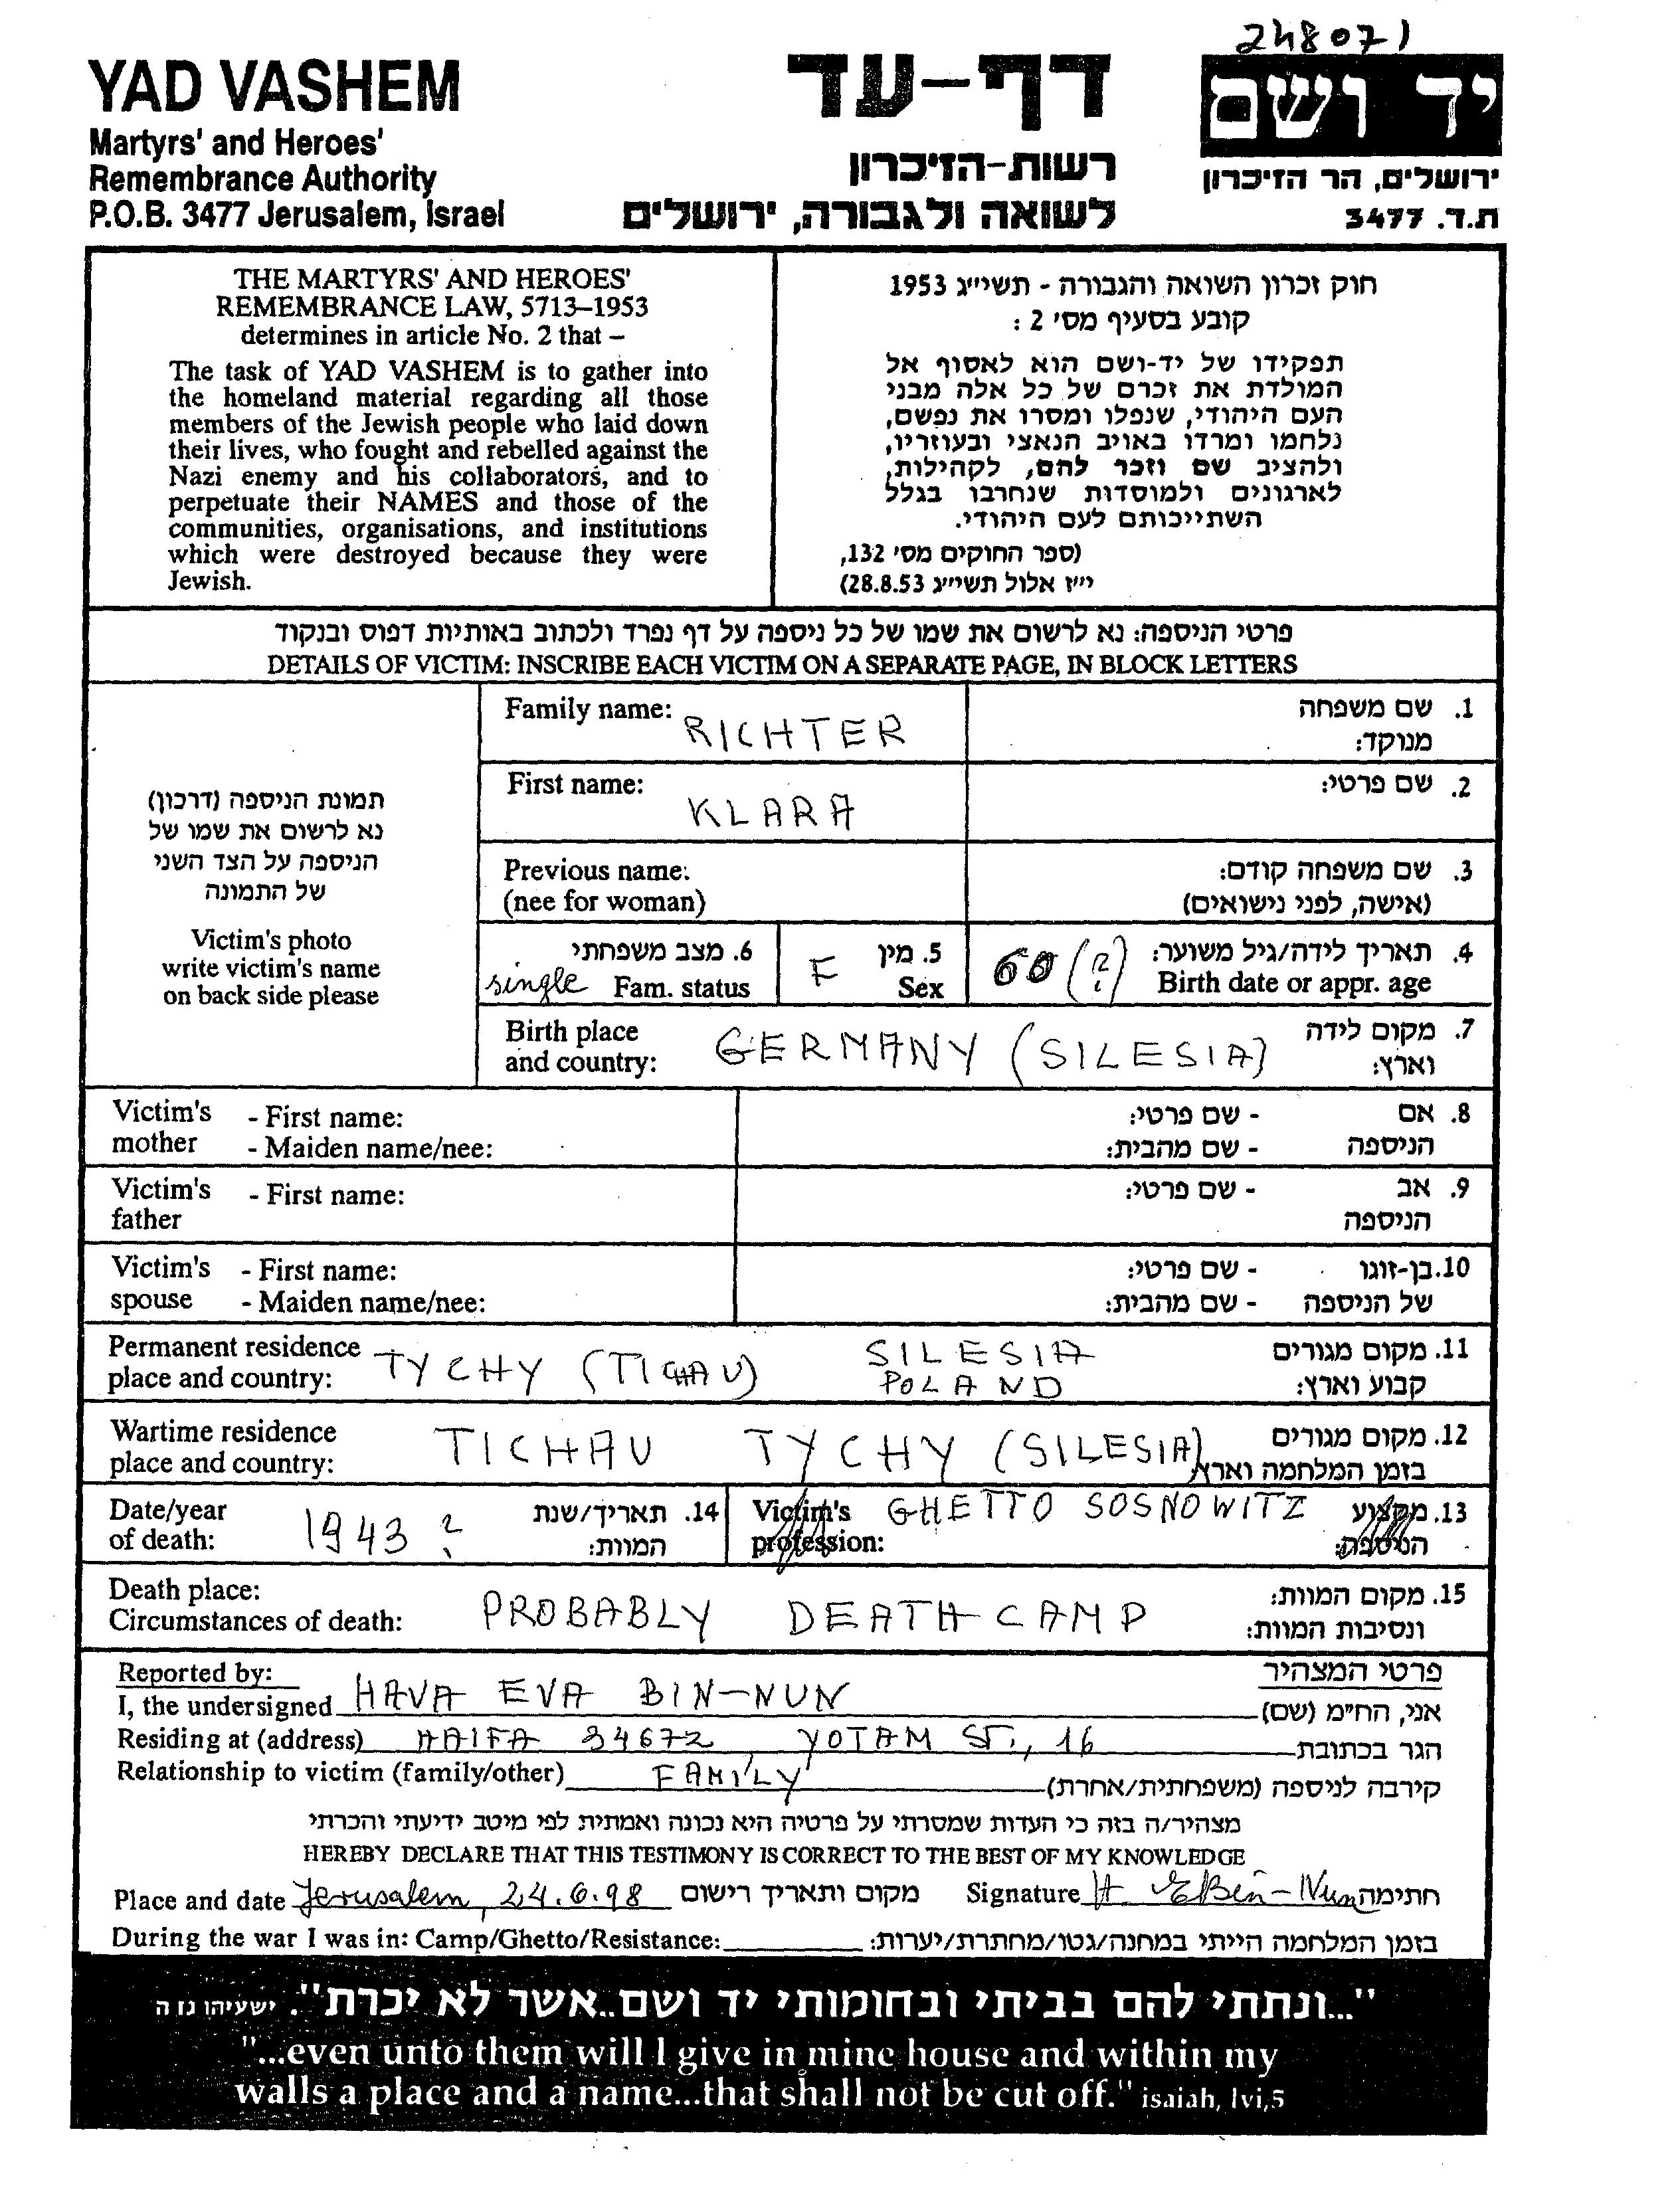 248071
YAD VASHEM
Martyrs' and Heroes'
Remembrance Authority
P.O.B. 3477 Jerusalem, Israel
דף-עד
רשות-הזיכרון
לשואה ולגבורה, ירושלים
יד ושם
ירושלים, הר הזיכרון
ת.ד. 3477
THE MARTYRS' AND HEROES'
REMEMBRANCE LAW, 5713–1953
determines in article No. 2 that –
The task of YAD VASHEM is to gather into
the homeland material regarding all those
members of the Jewish people who laid down
their lives, who fought and rebelled against the
Nazi enemy and his collaborators, and to
perpetuate their NAMES and those of the
communities, organisations, and institutions
which were destroyed because they were
Jewish.
חוק זכרון השואה והגבורה - תשי״ג 1953
קובע בסעיף מס׳ 2 :
תפקידו של יד-ושם הוא לאסוף אל
המולדת את זכרם של כל אלה מבני
העם היהודי, שנפלו ומסרו את נפשם,
נלחמו ומרדו באויב הנאצי ובעוזריו,
ולהציב שם וזכר להם, לקהילות,
לארגונים ולמוסדות שנחרבו בגלל
השתייכותם לעם היהודי.
(ספר החוקים מס׳ 132,
י״ז אלול תשי״ג 28.8.53)
פרטי הניספה: נא לרשום את שמו של כל ניספה על דף נפרד ולכתוב באותיות דפוס ובנקוד
DETAILS OF VICTIM: INSCRIBE EACH VICTIM ON A SEPARATE PAGE, IN BLOCK LETTERS
תמונת הניספה (דרכון)
נא לרשום את שמו של
הניספה על הצד השני
של התמונה
Victim's photo
write victim's name
on back side please
Family name: RICHTER
1. שם משפחה
מנוקד:
First name: KLARA
2. שם פרטי:
Previous name:
(nee for woman)
3. שם משפחה קודם:
(אישה, לפני נישואים)
6. מצב משפחתי
single Fam. status
5. מין
F Sex
4. תאריך לידה/גיל משוער:
60 (?) Birth date or appr. age
Birth place
and country: GERMANY (SILESIA)
7. מקום לידה
וארץ:
Victim's - First name:
mother - Maiden name/nee:
8. אם - שם פרטי:
הניספה - שם מהבית:
Victim's - First name:
father
9. אב - שם פרטי:
הניספה
Victim's - First name:
spouse - Maiden name/nee:
10. בן-זוגו - שם פרטי:
של הניספה - שם מהבית:
Permanent residence
place and country: TYCHY (TICHAU) SILESIA
POLAND
11. מקום מגורים
קבוע וארץ:
Wartime residence
place and country: TICHAU TYCHY (SILESIA)
12. מקום מגורים
בזמן המלחמה וארץ
Date/year
of death: 1943 ?
14. תאריך/שנת
המוות:
Victim's
profession: GHETTO SOSNOWITZ
13. מקצוע
הניספה:
Death place:
Circumstances of death: PROBABLY DEATH CAMP
15. מקום המוות:
ונסיבות המוות:
Reported by:
פרטי המצהיר
I, the undersigned HAVA EVA BIN-NUN אני, הח״מ (שם)
Residing at (address) HAIFA 34672, YOTAM ST., 16 הגר בכתובת
Relationship to victim (family/other) FAMILY קירבה לניספה (משפחתית/אחרת)
מצהיר/ה בזה כי העדות שמסרתי על פרטיה היא נכונה ואמתית לפי מיטב ידיעתי והכרתי
HEREBY DECLARE THAT THIS TESTIMONY IS CORRECT TO THE BEST OF MY KNOWLEDGE
Place and date Jerusalem, 24.6.98 מקום ותאריך רישום Signature H. E Bin-Nun חתימה
During the war I was in: Camp/Ghetto/Resistance: בזמן המלחמה הייתי במחנה/גטו/מחתרת/יערות:
"...ונתתי להם בביתי ובחומותי יד ושם..אשר לא יכרת". ישעיהו נו ה
"...even unto them will I give in mine house and within my
walls a place and a name...that shall not be cut off." isaiah, lvi,5